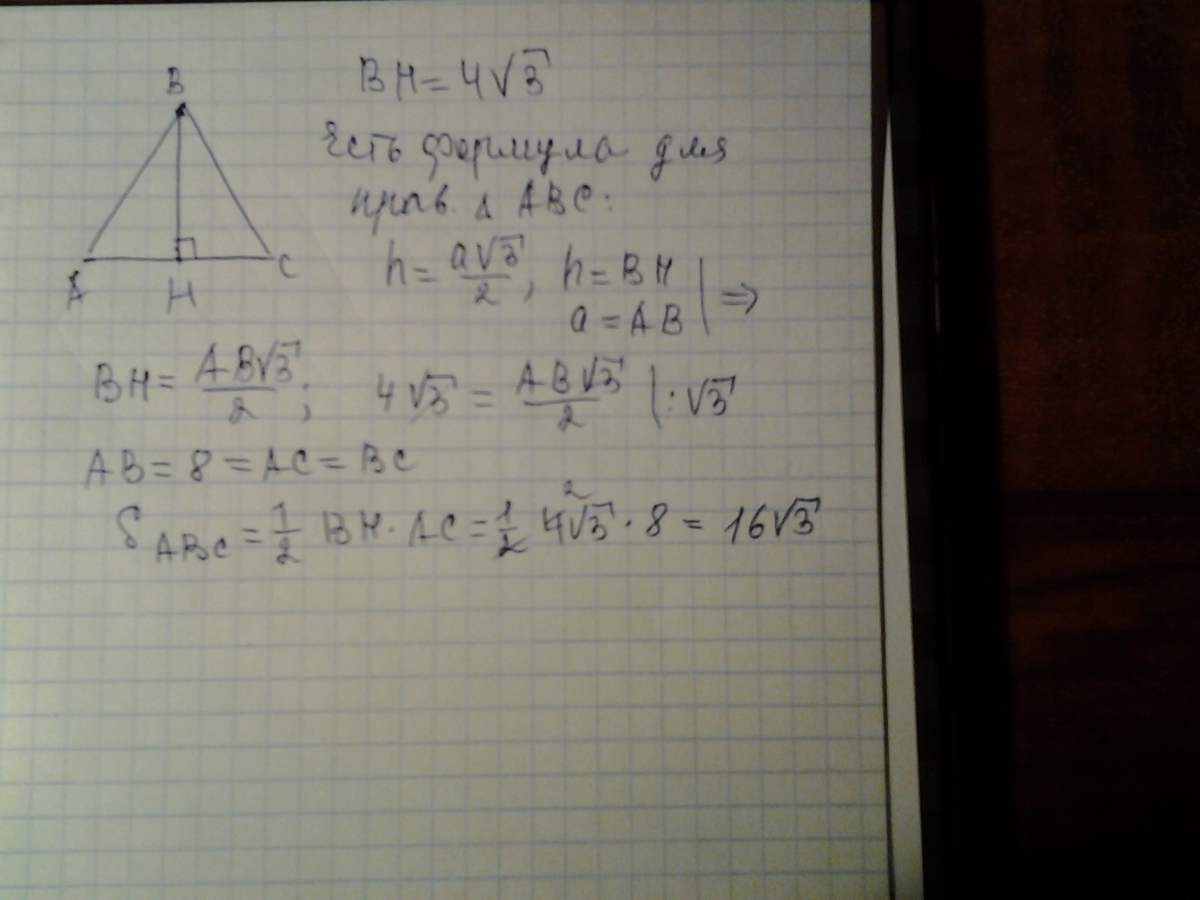 B
A
H
C
BH = 4√3
Есть формула для
прав. Δ ABC:
h = a√3/2, h = BH
a = AB | ⇒
BH = AB√3/2; 4√3 = AB√3/2 | : √3
AB = 8 = AC = BC
S ABC = 1/2 BH · AC = 1/2 4√3 · 8 = 16√3
2